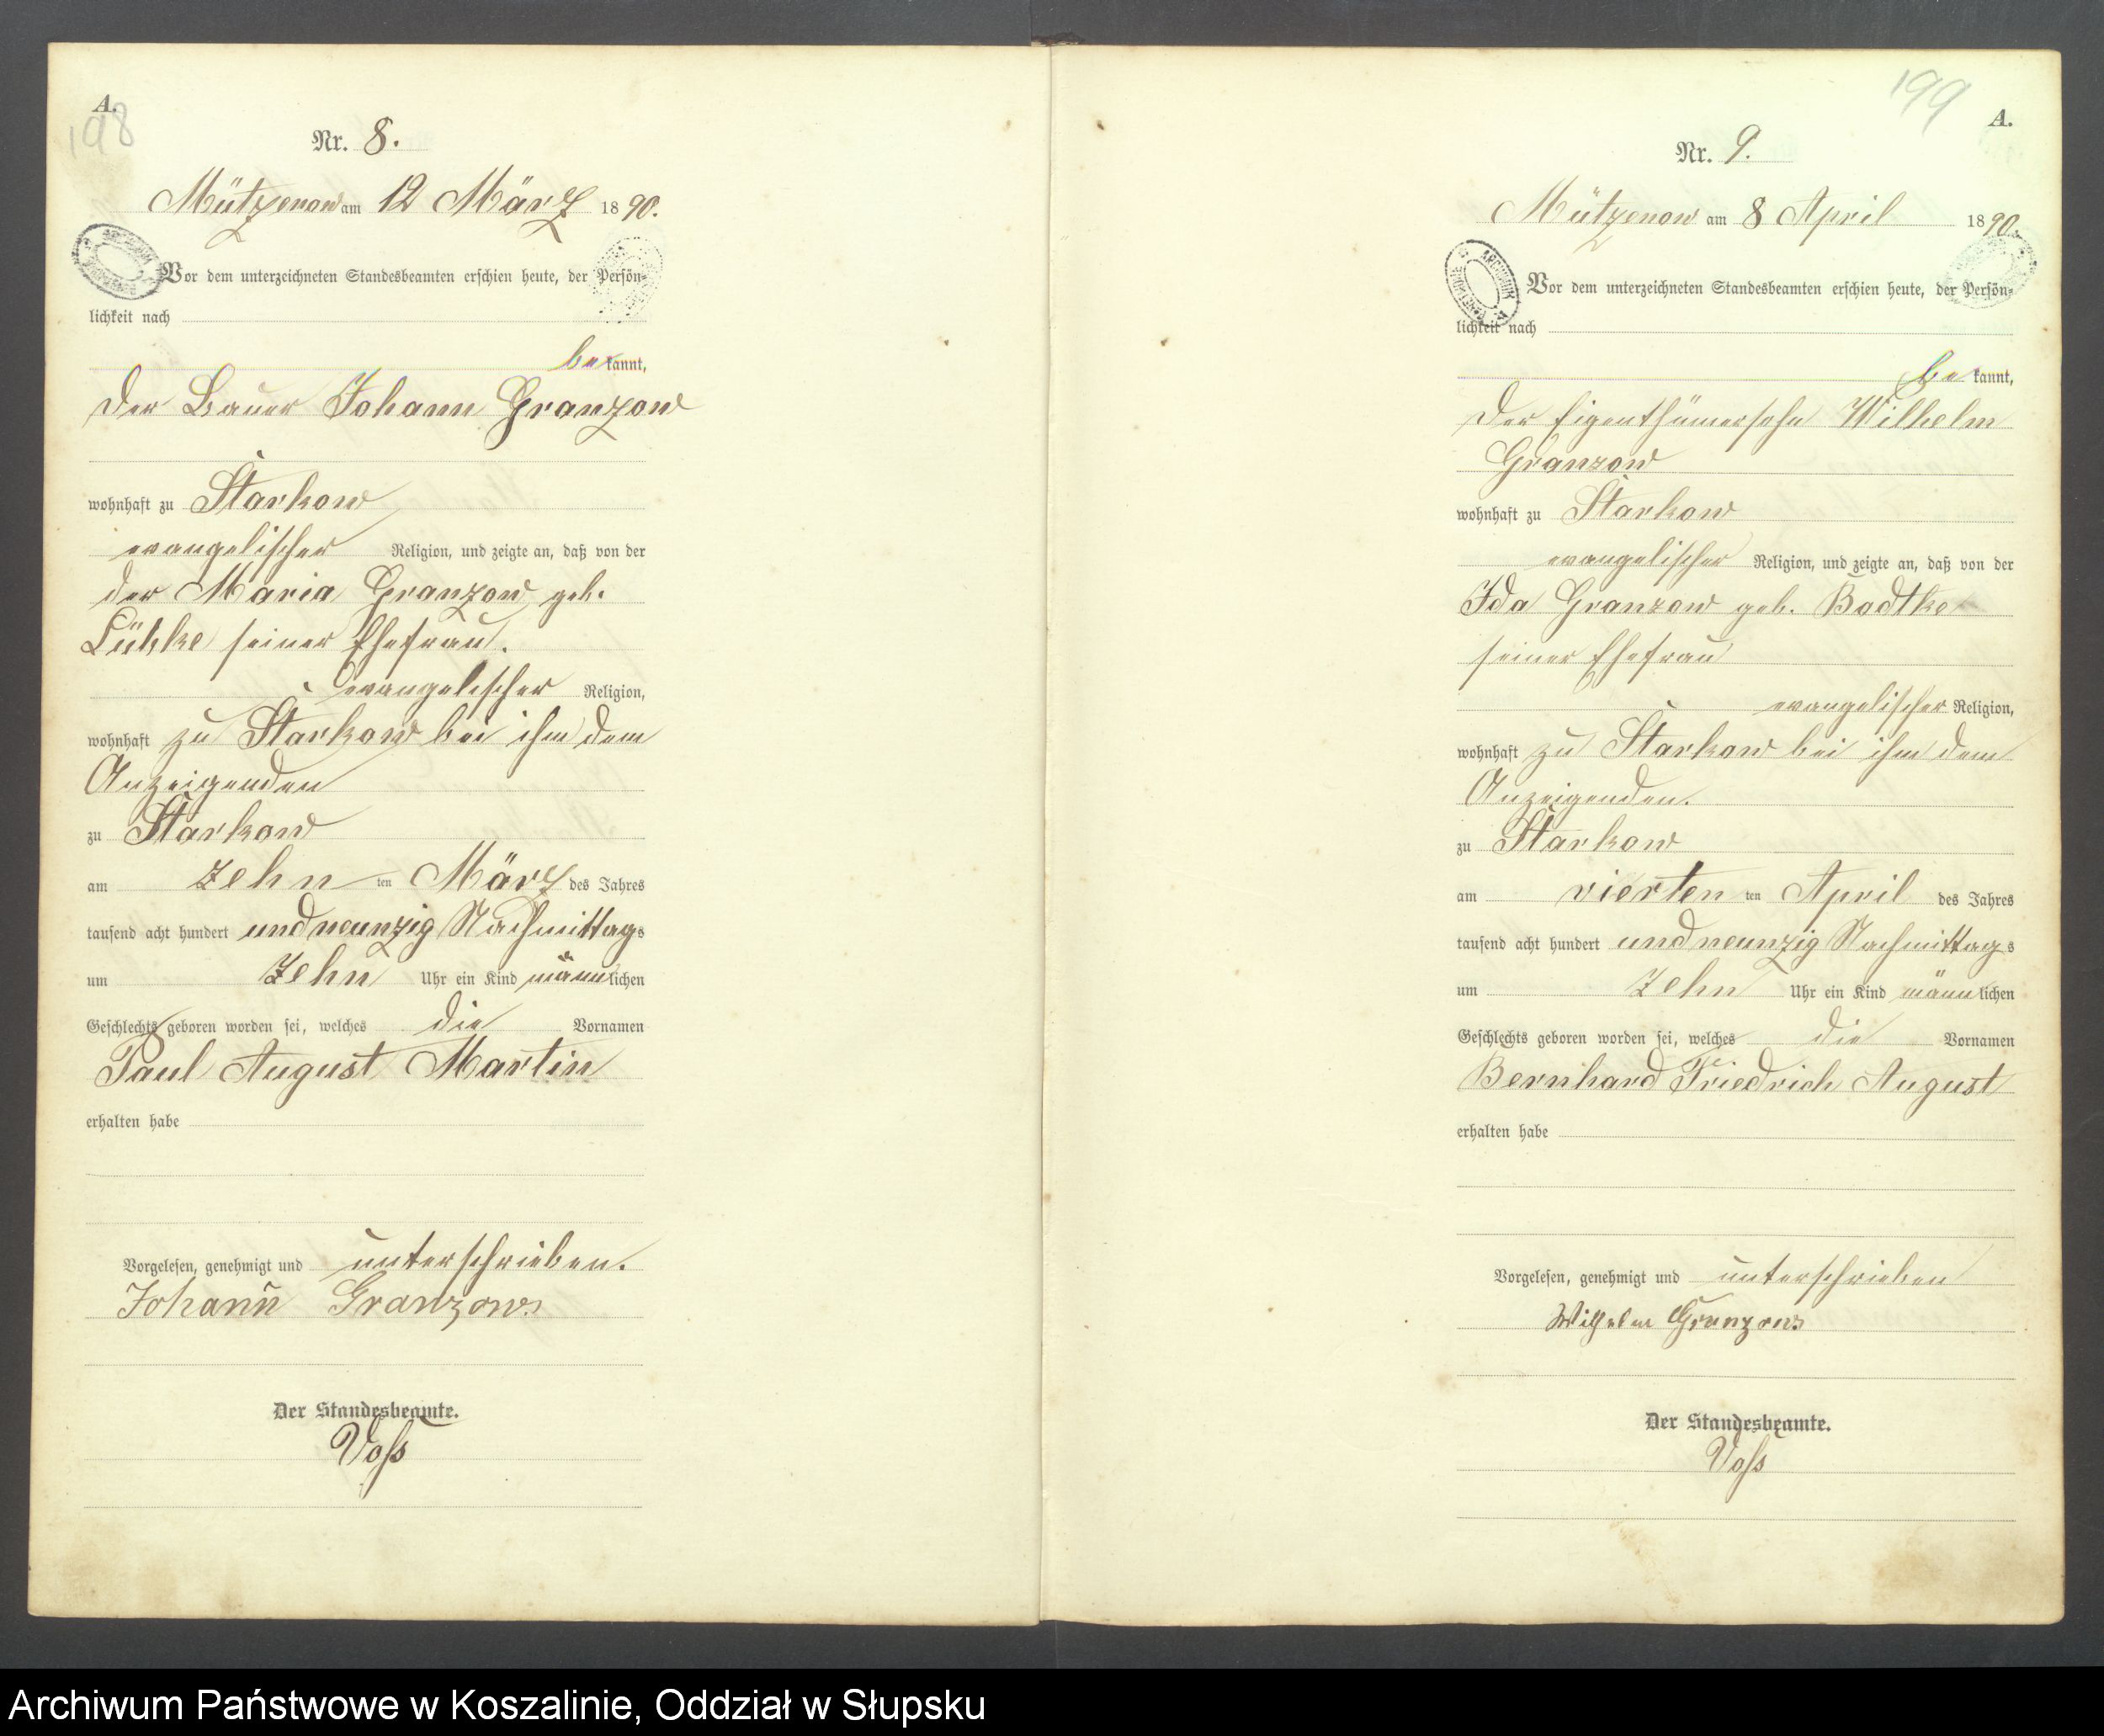 A.
198
Nr. 8.
Mützenow am 12 März 1890.
Vor dem unterzeichneten Standesbeamten erschien heute, der Persön-
lichkeit nach
bekannt,
der Bauer Johann Granzow
wohnhaft zu Starkow
evangelischer Religion, und zeigte an, daß von der
der Maria Granzow geb.
Lübke seiner Ehefrau.
evangelischer Religion,
wohnhaft zu Starkow bei ihm dem
Anzeigenden
zu Starkow
am zehn ten März des Jahres
tausend acht hundert und neunzig Nachmittags
um zehn Uhr ein Kind männlichen
Geschlechts geboren worden sei, welches die Vornamen
Paul August Martin
erhalten habe
Vorgelesen, genehmigt und unterschrieben.
Johann Granzow
Der Standesbeamte.
Voß
199
A.
Nr. 9.
Mützenow am 8 April 1890.
ARCHIWUM
Vor dem unterzeichneten Standesbeamten erschien heute, der Persön-
lichkeit nach
bekannt,
der Eigenthümersohn Wilhelm
Granzow
wohnhaft zu Starkow
evangelischer Religion, und zeigte an, daß von der
Ida Granzow geb. Badtke
seiner Ehefrau
evangelischer Religion,
wohnhaft zu Starkow bei ihm dem
Anzeigenden.
zu Starkow
am vierten ten April des Jahres
tausend acht hundert und neunzig Nachmittags
um zehn Uhr ein Kind männlichen
Geschlechts geboren worden sei, welches die Vornamen
Bernhard Friedrich August
erhalten habe
Vorgelesen, genehmigt und unterschrieben
Wilhelm Granzow
Der Standesbeamte.
Voß
Archiwum Państwowe w Koszalinie, Oddział w Słupsku